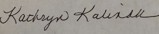 Kathryn Kalinak